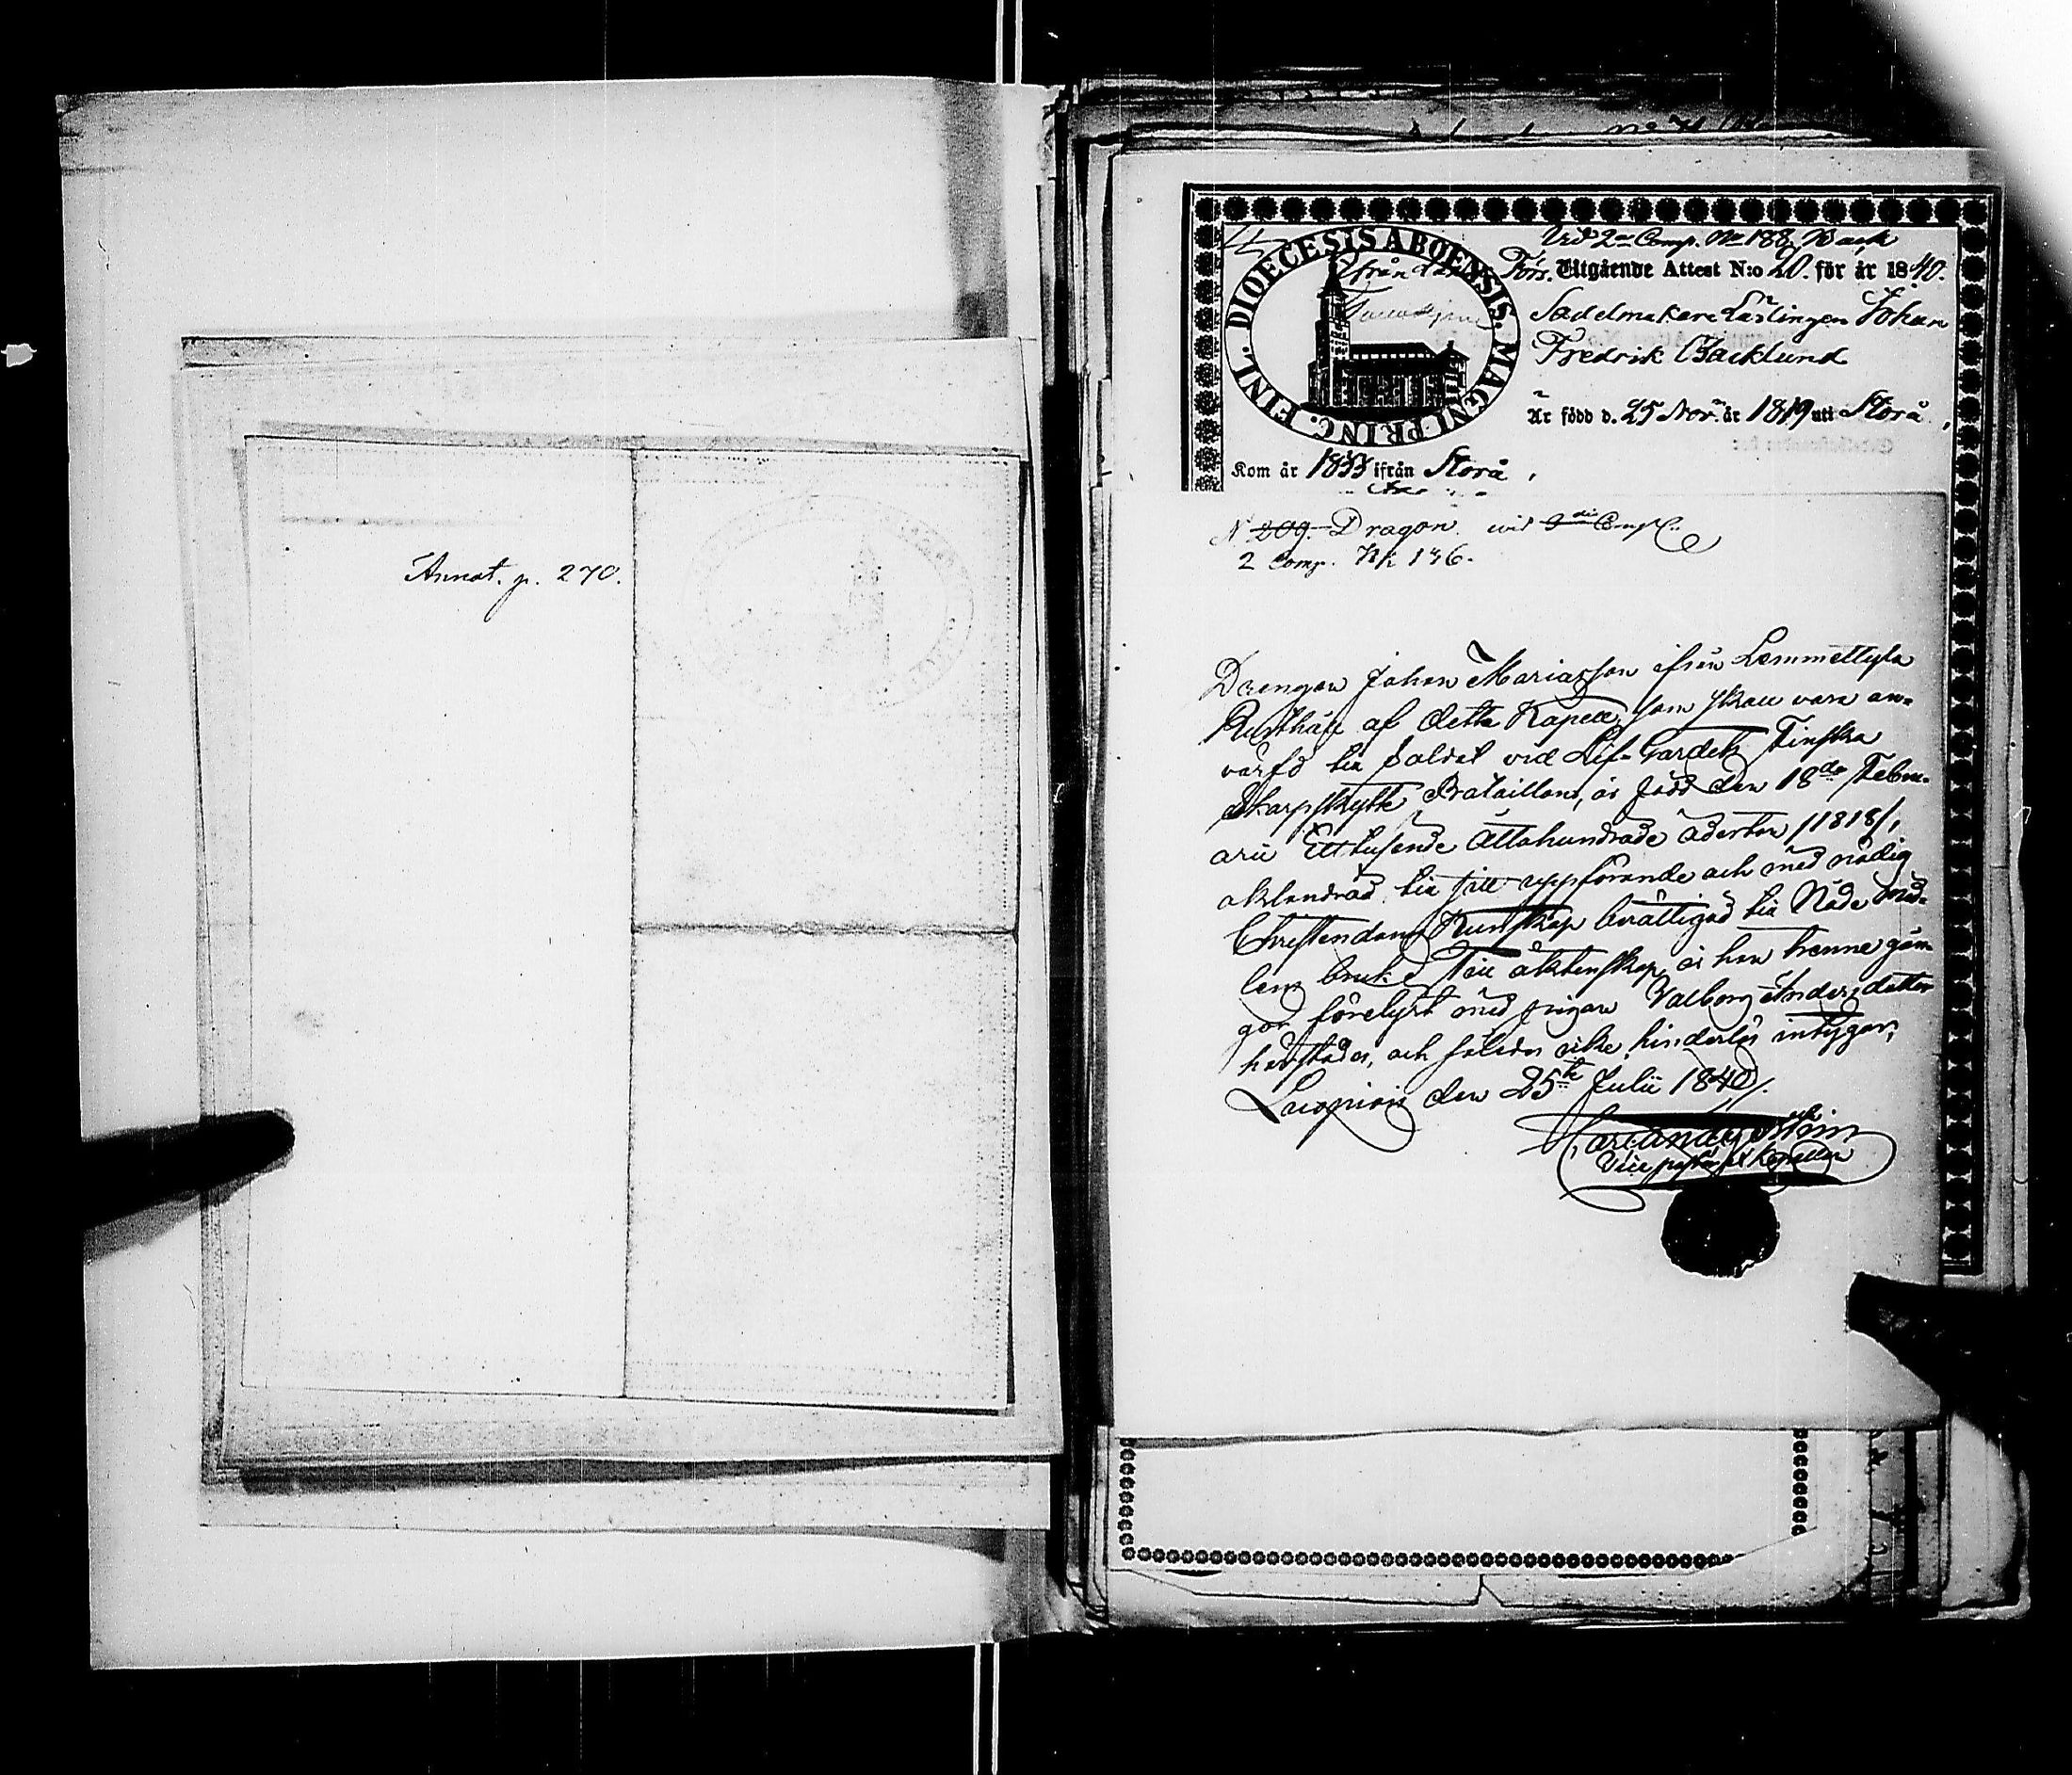 Annot. p. 270.
Vid 2 Comp. No 188 Back
Förs. Utgående Attest N:o 20. för år 1840.
DIOECESIS ABOENSIS. MAGNI PRINC. FINL.
ifrån
Sadelmakare Lärlingen Johan
Fredrik Backlund
Är född d. 25 Nov. år 1819 uti Storå.
Kom år 1833 ifrån Storå.
N. 209. Dragon. vid Comp.
2 Comp. Nk 136.
Drengen Johan Mariasson ifrån Lemmettylä
Rusthåll af detta Kapell, som skall vara an-
värfd till Soldat vid Lif-Gardets Finska
Skarpskytte Bataillon, är född den 18de Febru-
arii Ett tusende Åttahundrade aderton /1818/,
oklandrad till sitt uppförande och med nödig
Christendoms Kunskap berättigad till Nåde Med-
lens bruk. Till äktenskap är han trenne gån-
gor förelyst med pigan Valborg Andersdotter
härstädes, och således icke hinderlös intygar;
Luopiois den 25te Julii 1840.
Vice pastor Kapellan